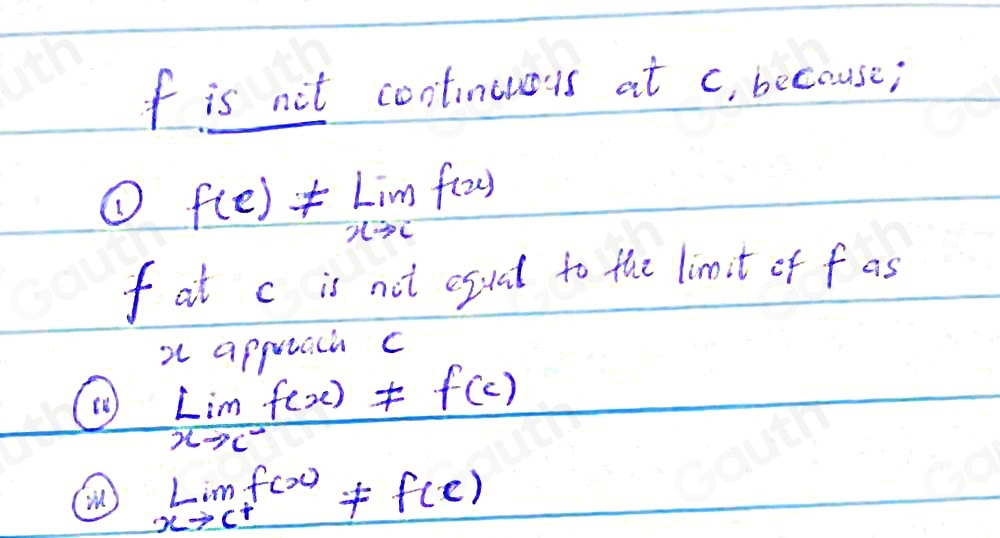 f is not continuous at c, because;
① f(c) ≠ Lim f(x)
x→c
f at c is not equal to the limit of f as
x approach c
(ii) Lim f(x) ≠ f(c)
x→c⁻
(iii) Lim f(x) ≠ f(c)
x→c⁺